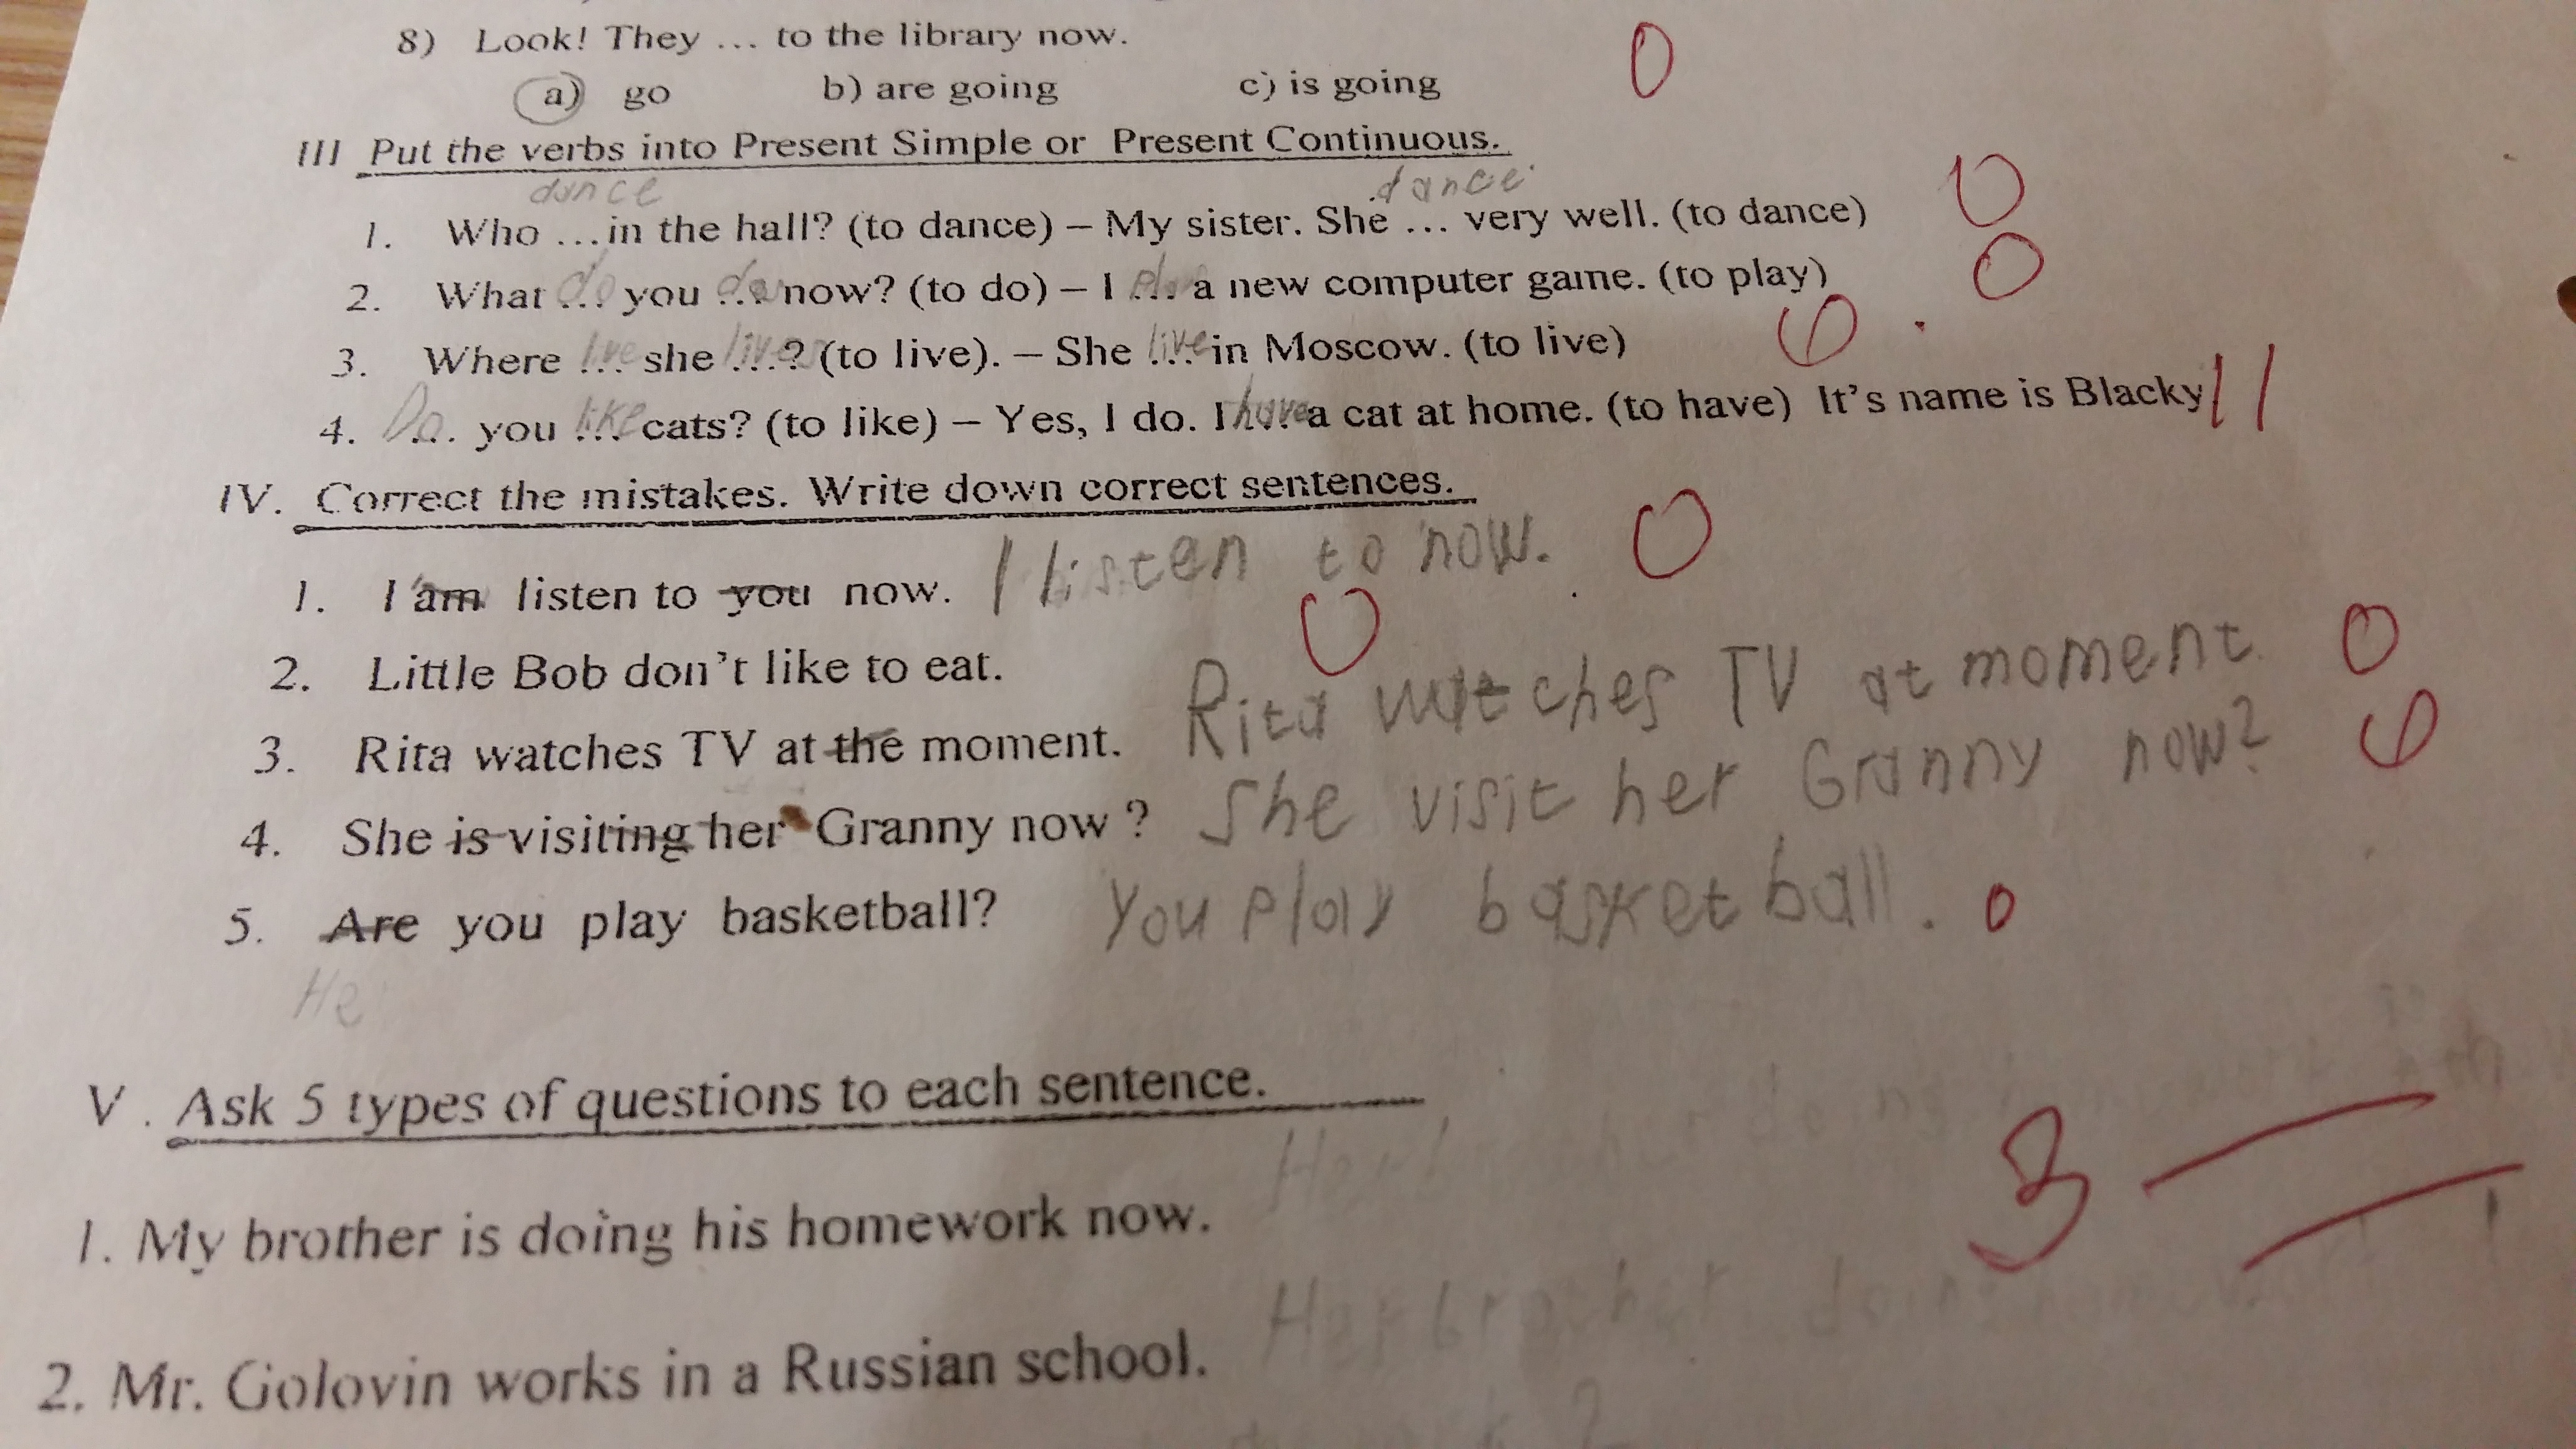 8) Look! They ... to the library now.
a) go b) are going c) is going
0
III Put the verbs into Present Simple or Present Continuous.
dance dance
1. Who ...in the hall? (to dance) – My sister. She ... very well. (to dance)
0
2. What do ... you do ... now? (to do) – I play ... a new computer game. (to play)
0
3. Where live ... she ...? (to live). – She live ... in Moscow. (to live)
0
4. Do ... you like ... cats? (to like) – Yes, I do. I have ... a cat at home. (to have) It's name is Blacky
IV. Correct the mistakes. Write down correct sentences.
1. I am listen to you now. I listen to now. 0
2. Little Bob don't like to eat. 0
3. Rita watches TV at the moment. Rita watches TV at moment. 0
4. She is visiting her Granny now ? She visit her Granny now? 0
5. Are you play basketball? You play basketball. 0
He
V . Ask 5 types of questions to each sentence.
3
1. My brother is doing his homework now.
2. Mr. Golovin works in a Russian school.